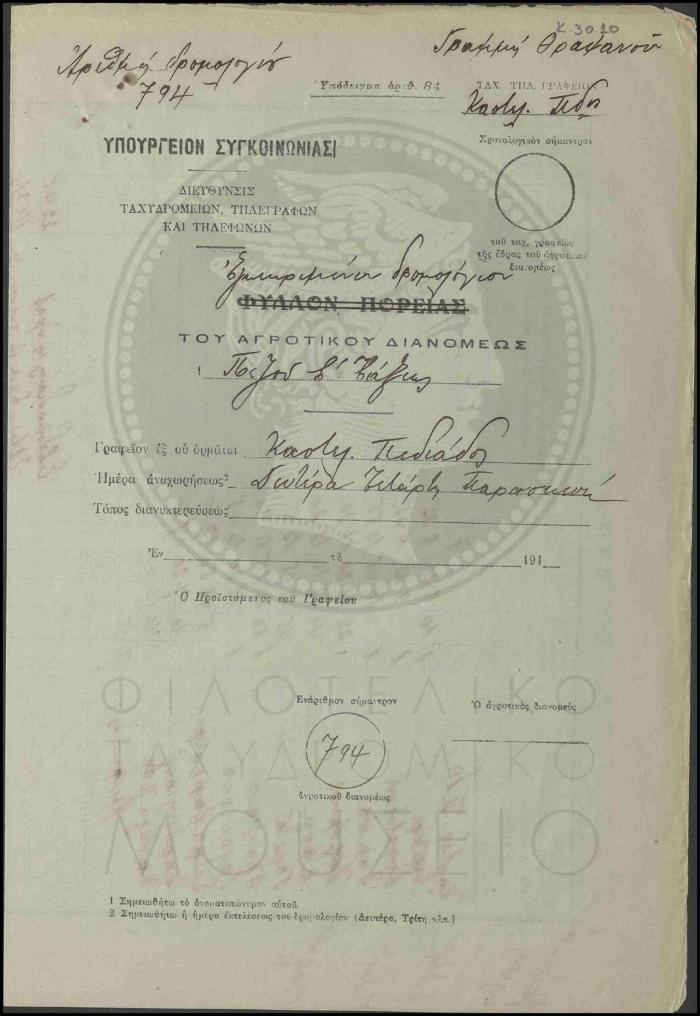 Κ.3020
Ἀριθμὸς δρομολογίου
794
Γραμμὴ Θραψανοῦ
Ὑπόδειγμα ἀριθ. 84
ΤΑΧ. ΤΗΛ. ΓΡΑΦΕΙΟΝ
Καστ. Πεδ
ΥΠΟΥΡΓΕΙΟΝ ΣΥΓΚΟΙΝΩΝΙΑΣ
Χρονολογικὸν σήμαντρον
ΔΙΕΥΘΥΝΣΙΣ
ΤΑΧΥΔΡΟΜΕΙΩΝ, ΤΗΛΕΓΡΑΦΩΝ
ΚΑΙ ΤΗΛΕΦΩΝΩΝ
τοῦ ταχ. γραφείου
τῆς ἕδρας τοῦ ἀγροτικοῦ
διανομέως
δρομολόγιον
ΦΥΛΛΟΝ ΠΟΡΕΙΑΣ
ΤΟΥ ΑΓΡΟΤΙΚΟΥ ΔΙΑΝΟΜΕΩΣ
1 Πεζοῦ Β' Τάξεως
Γραφεῖον ἐξ οὗ ὁρμᾶται Καστ. Πεδιάδος
Ἡμέρα ἀναχωρήσεως2 Δευτέρα Τετάρτη Παρασκευὴ
Τόπος διανυκτερεύσεως
Ἐν τῇ 191
Ὁ Προϊστάμενος τοῦ Γραφείου
Ἐνάριθμον σήμαντρον
Ὁ ἀγροτικὸς διανομεὺς
794
ἀγροτικοῦ διανομέως
ΦΙΛΟΤΕΛΙΚΟ
ΤΑΧΥΔΡΟΜΙΚΟ
ΜΟΥΣΕΙΟ
1 Σημειωθήτω τὸ ὀνοματεπώνυμον αὐτοῦ.
2 Σημειωθήτω ἡ ἡμέρα ἐκτελέσεως τοῦ δρομολογίου (Δευτέρα, Τρίτη κλπ.)